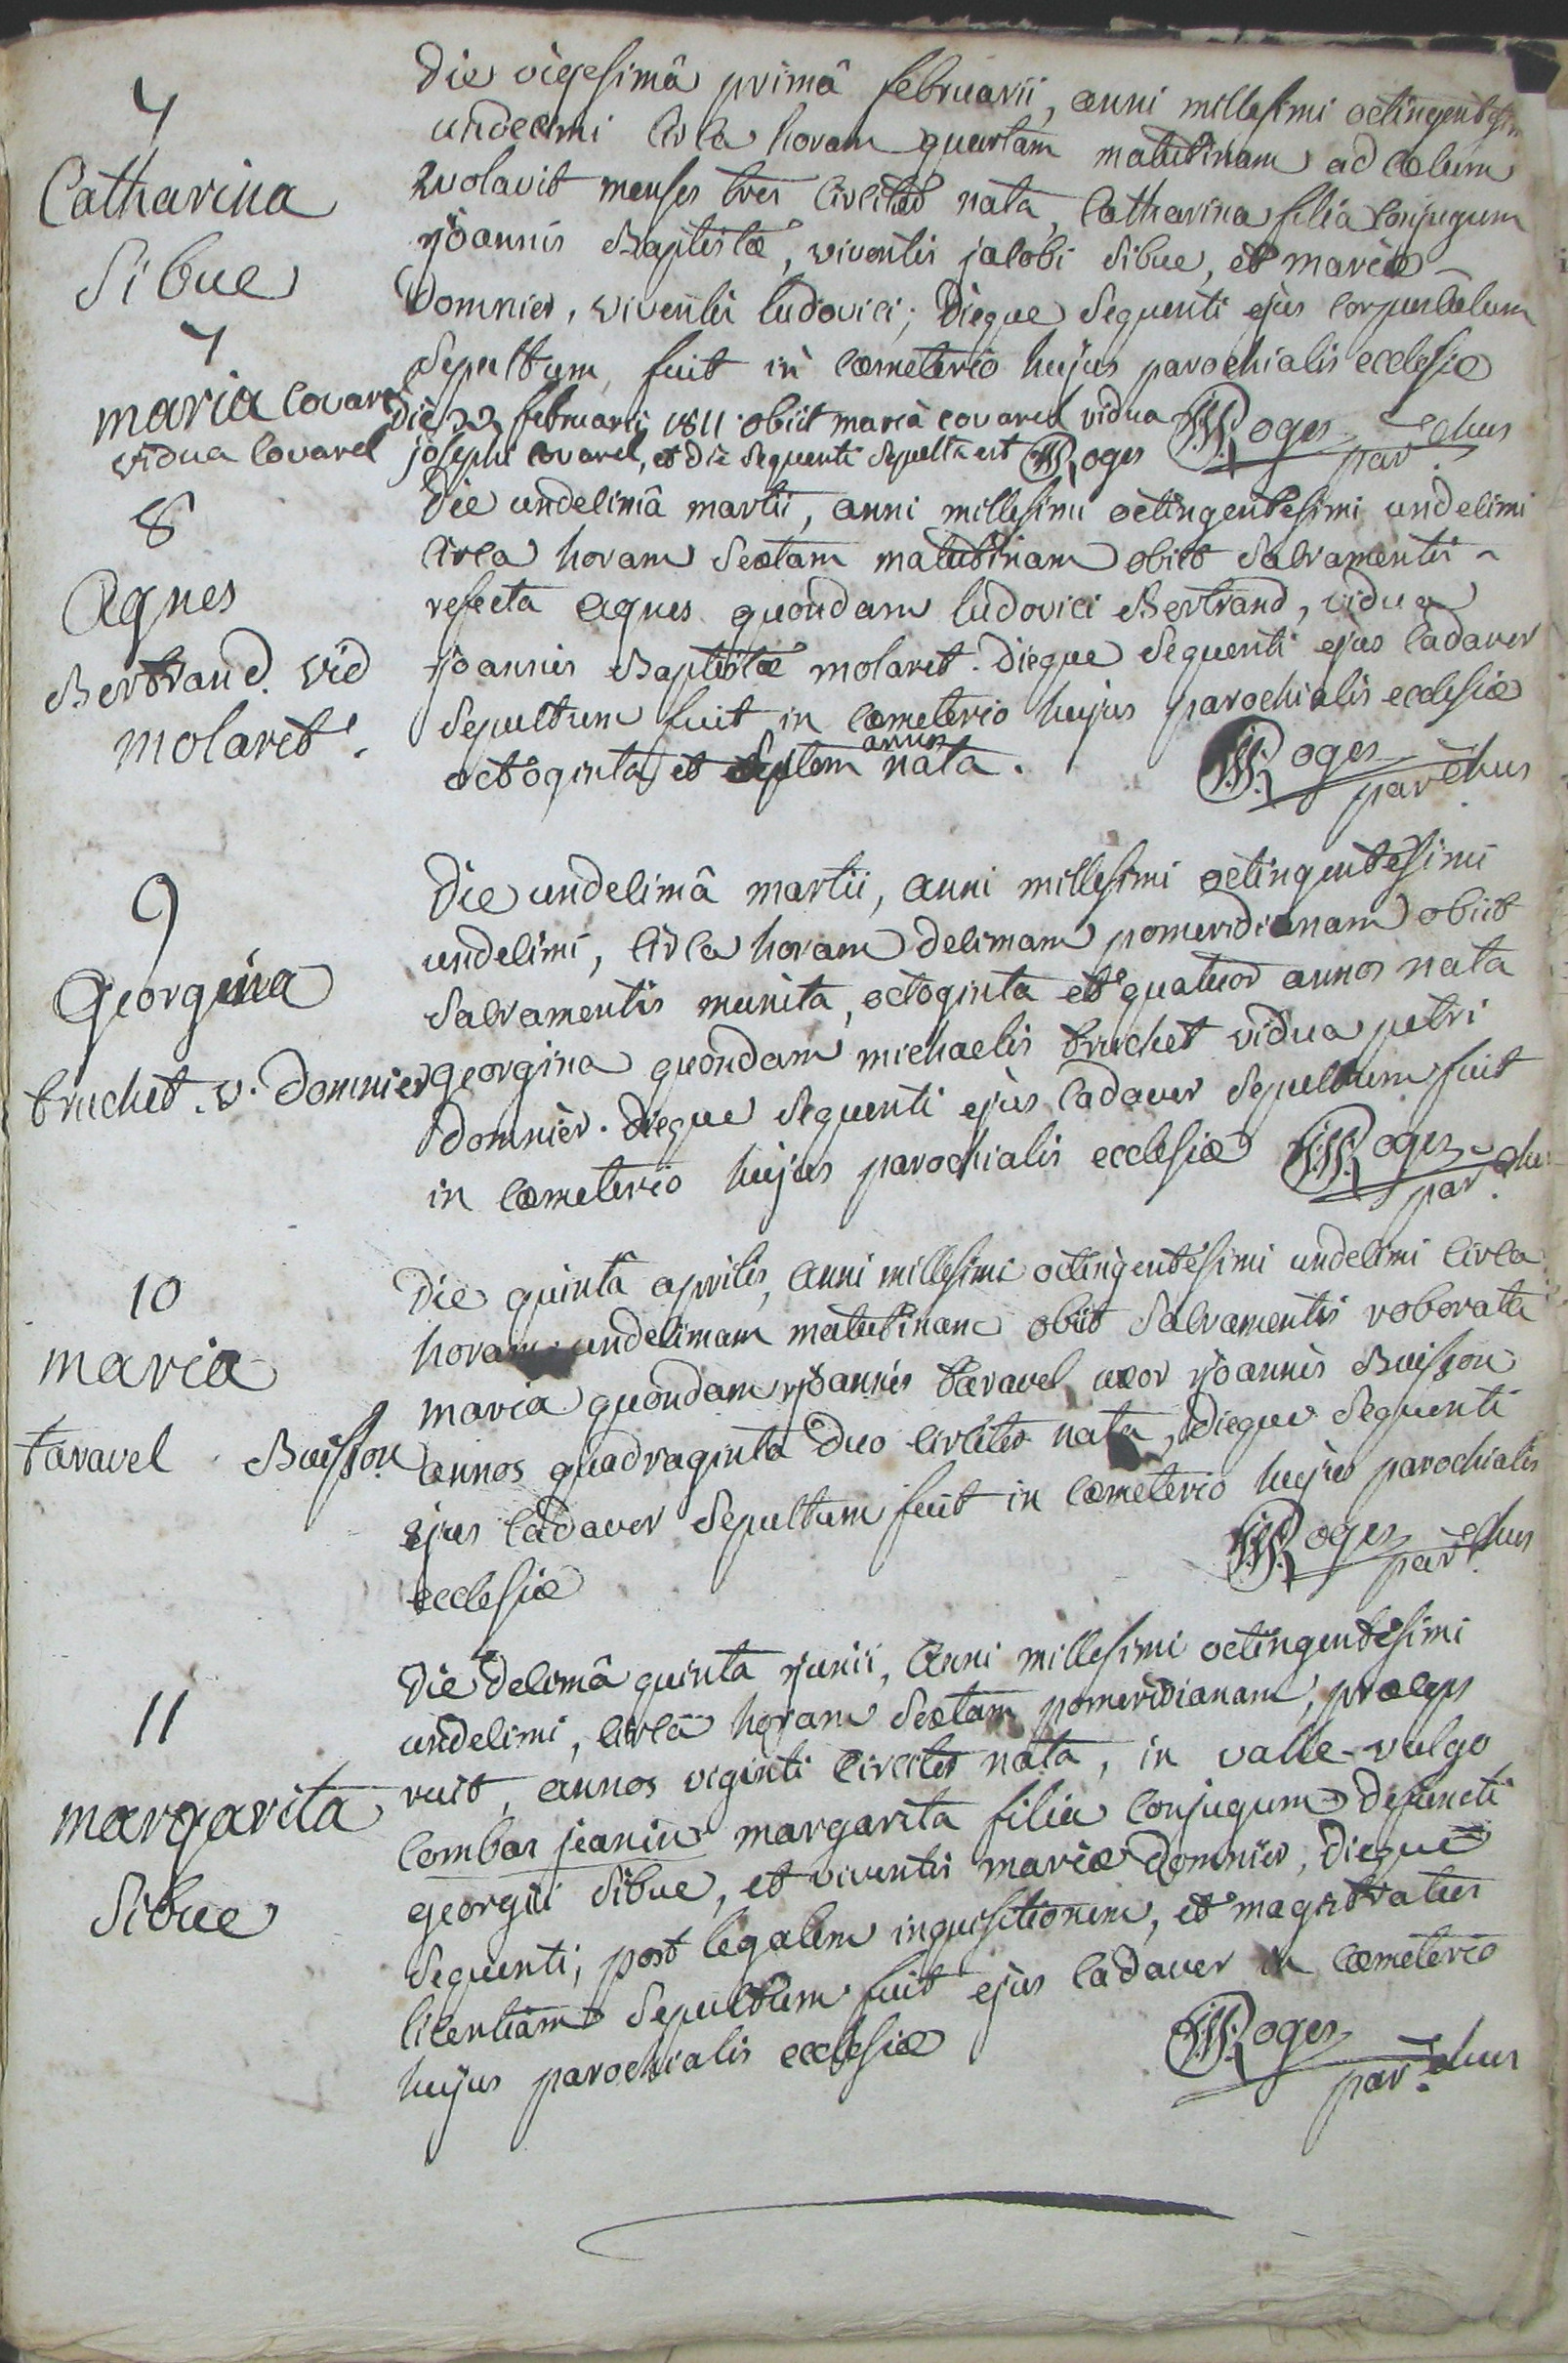 7
Catharina
Sibue
Die vigesimâ primâ februarii, anni millesimi octingentesimi
undecimi circa horam quartam matutinam ad cælum
evolavit menses tres circiter nata, Catharina filia conjugum
joannis Baptistæ, viventis jacobi Sibue, et mariæ
Domnier, viventis ludovici; Dieque Sequenti ejus corpusculum
Sepultum fuit in cœmeterio hujus parochialis ecclesiæ
Roges parchus
7
maria Covarel
vidua Covarel
Die 22 februarii 1811 obiit maria covarel vidua
josephi covarel, et die Sequenti Sepulta est Roges
8
Agnes
Bertrand vid
molaret.
Die undecimâ martii, anni millesimi octingentesimi undecimi
circa horam Sextam matutinam obiit Sacramentis
refecta agnes quondam ludovici Bertrand, vidua
joannis Baptistæ molaret. Dieque Sequenti ejus cadaver
Sepultum fuit in cœmeterio hujus parochialis ecclesiæ
octoginta et Septem annos nata.
Roges parchus
9
Georgina
truchet. v. Domnier
Die undecimâ martii, anni millesimi octingentesimi
undecimi, circa horam decimam pomeridianam obiit
Sacramentis munita, octoginta et quatuor annos nata
georgina quondam michaelis truchet vidua petri
domnier. Dieque Sequenti ejus cadaver Sepultum fuit
in cœmeterio hujus parochialis ecclesiæ Roges parchus
10
maria
taravel Buisson
Die quinta aprilis, anni millesimi octingentesimi undecimi circa
horam undecimam matutinam obiit Sacramentis roborata
maria quondam joannis taravel uxor joannis Buisson
annos quadraginta duo circiter nata, Dieque Sequenti
ejus cadaver Sepultum fuit in cœmeterio hujus parochialis
ecclesiæ
Roges parchus
11
margarita
Sibue
Die decimâ quinta junii, anni millesimi octingentesimi
undecimi, circa horam Sextam pomeridianam, præceps
ruit, annos viginti circiter nata, in valle vulgo
combas jeanin margarita filia conjugum defuncti
georgii Sibue, et viventis mariæ domnier, Dieque
Sequenti, post legalem inquisitionem, et magistratus
licentiam Sepultum fuit ejus cadaver in cœmeterio
hujus parochialis ecclesiæ
Roges parchus